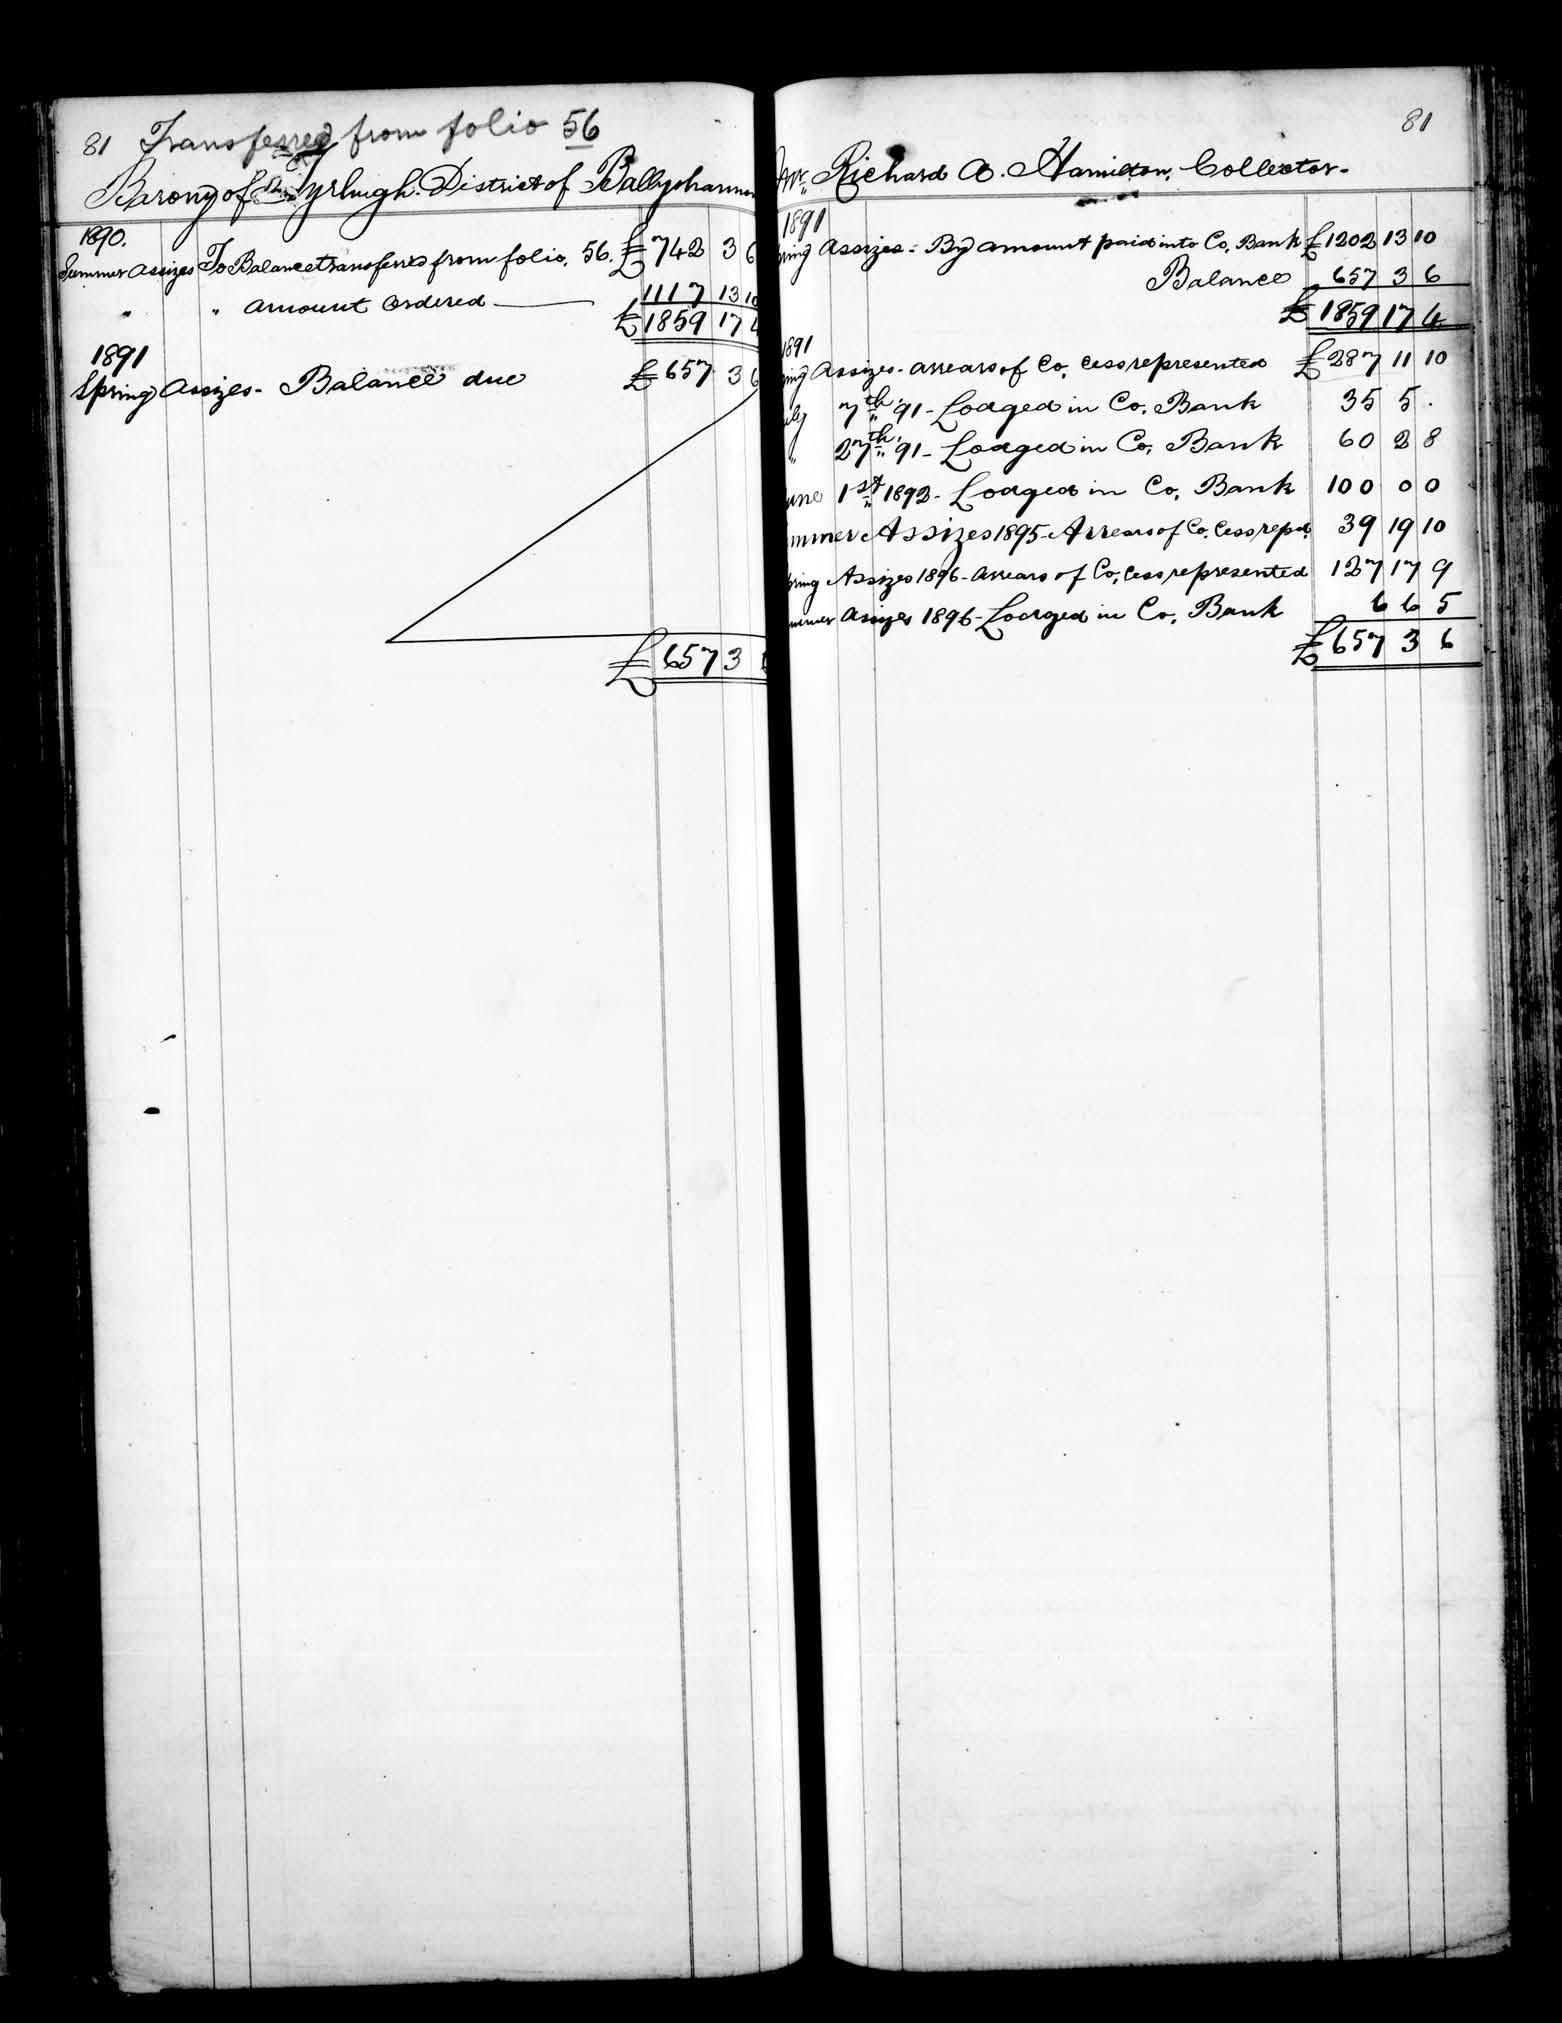 81 Transferred from folio 56
Barony of Tyrhugh. District of Ballyshannon
1890.
Summer Assizes To Balance transferred from folio. 56. £ 742 3 6
" " Amount Ordered £ 1117 13 10
£ 1859 17 4
1891
Spring Assizes - Balance due £ 657 3 6
£ 657 3
81
Mr. Richard A. Hamilton, Collector.
1891
ring Assizes - By amount paid into Co. Bank £ 1202 13 10
Balance 657 3 6
£ 1859 17 4
1891
ring Assizes - arrears of Co. Cess represented £ 287 11 10
uly 7th '91 - Lodged in Co. Bank 35 5 .
" 27th '91 - Lodged in Co. Bank 60 2 8
une 1st 1892 - Lodged in Co. Bank 100 0 0
mmer Assizes 1895 - Arrears of Co. Cess repd. 39 19 10
pring Assizes 1896 - arrears of Co. Cess represented 127 17 9
mmer Assizes 1896 - Lodged in Co. Bank 6 6 5
£ 657 3 6